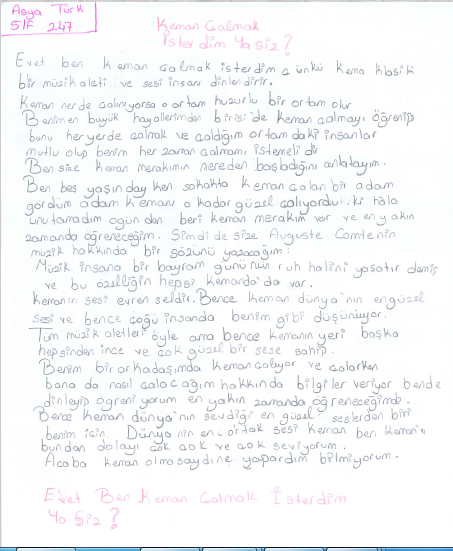 Asya Türk
5/F 247
Keman Çalmak
İsterdim Ya siz?
Evet ben Keman çalmak isterdim çünkü Kema klasik
bir müzik aleti ve sesi insanı dinlendirir.
Keman nerde çalınıyorsa o ortam huzurlu bir ortam olur
Benimen büyük hayallerimden birisi de keman çalmayı öğrenip
bunu her yerde çalmak ve çaldığım ortamdaki insanlar
mutlu olup benim her zaman çalmamı istemelidir
Ben size keman merakımın nereden başladığını anlatayım.
Ben beş yaşınday ken sokakta Keman çalan bir adam
gördüm adam Kemanı o kadar güzel çalıyordu ki hala
unutamadım ogün den beri keman merakım var ve en yakın
zamanda öğreneceğim. Şimdi de size Auguste Comtenin
müzik hakkında bir sözünü yazacağım:
Müzik insana bir bayram günü'nün ruh halini yaşatır demiş
ve bu özelliğin hepsi kemanda'da var.
kemanın sesi evren seldir. Bence keman dünya'nın en güzel
sesi ve bence çoğu insanda benim gibi düşünüyor.
Tüm müzik aletleri öyle ama bence kemanın yeri başka
hepsinden ince ve çok güzel bir sese sahip.
Benim bir arkadaşımda Keman çalıyor ve çalarken
bana da nasıl çalacağım hakkında bilgiler veriyor bende
dinleyip öğreniyorum en yakın zamanda öğreneceğimde.
Bence Keman dünya'nın sevdiği en güzel seslerden biri
benim için. Dünya nın en ortak sesi keman ben keman'ı
bundan dolayı çok çok ve çok seviyorum.
Acaba keman olmasaydı ne yapardım bilmiyorum.
Evet Ben Keman Çalmak İsterdim
Ya Siz?